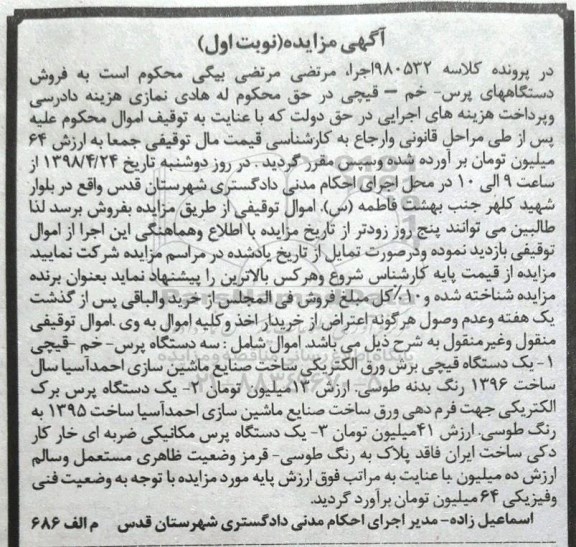 آگهی مزایده(نوبت اول)
در پرونده کلاسه ۹۸۰۵۳۲اجرا، مرتضی مرتضی بیگی محکوم است به فروش
دستگاههای پرس- خم – قیچی در حق محکوم له هادی نمازی هزینه دادرسی
وپرداخت هزینه های اجرایی در حق دولت که با عنایت به توقیف اموال محکوم علیه
پس از طی مراحل قانونی وارجاع به کارشناسی قیمت مال توقیفی جمعا به ارزش ۶۴
میلیون تومان بر آورده شده وسپس مقرر گردید . در روز دوشنبه تاریخ ۱۳۹۸/۴/۲۴ از
ساعت ۹ الی ۱۰ در محل اجرای احکام مدنی دادگستری شهرستان قدس واقع در بلوار
شهید کلهر جنب بهشت فاطمه (س)، اموال توقیفی از طریق مزایده بفروش برسد لذا
طالبین می توانند پنج روز زودتر از تاریخ مزایده با اطلاع وهماهنگی این اجرا از اموال
توقیفی بازدید نموده ودرصورت تمایل از تاریخ یادشده در مراسم مزایده شرکت نمایید.
مزایده از قیمت پایه کارشناس شروع وهرکس بالاترین را پیشنهاد نماید بعنوان برنده
مزایده شناخته شده و ۱۰٪کل مبلغ فروش فی المجلس از خرید والباقی پس از گذشت
یک هفته وعدم وصول هرگونه اعتراض از خریدار اخذ و کلیه اموال به وی .اموال توقیفی
منقول وغیرمنقول به شرح ذیل می باشد. اموال شامل : سه دستگاه پرس- خم -قیچی
۱- یک دستگاه قیچی برش ورق الکتریکی ساخت صنایع ماشین سازی احمدآسیا سال
ساخت ۱۳۹۶ رنگ بدنه طوسی. ارزش ۱۳میلیون تومان ۲- یک دستگاه پرس برک
الکتریکی جهت فرم دهی ورق ساخت صنایع ماشین سازی احمدآسیا ساخت ۱۳۹۵ به
رنگ طوسی. ارزش ۴۱میلیون تومان ۳- یک دستگاه پرس مکانیکی ضربه ای خار کار
دکی ساخت ایران فاقد پلاک به رنگ طوسی- قرمز وضعیت ظاهری مستعمل وسالم
ارزش ده میلیون .با عنایت به مراتب فوق ارزش پایه مورد مزایده با توجه به وضعیت فنی
وفیزیکی ۶۴ میلیون تومان برآورد گردید.
اسماعیل زاده- مدیر اجرای احکام مدنی دادگستری شهرستان قدس م الف ۶۸۶